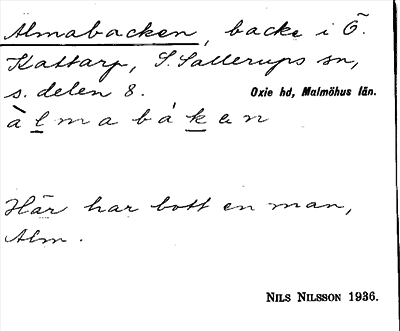 Almabacken, backe i Ö.
Kattarp, S. Sallerups sn,
s. delen 8. Oxie hd, Malmöhus län.
àlmabákan
Här har bott en man,
Alm.
NILS NILSSON 1936.